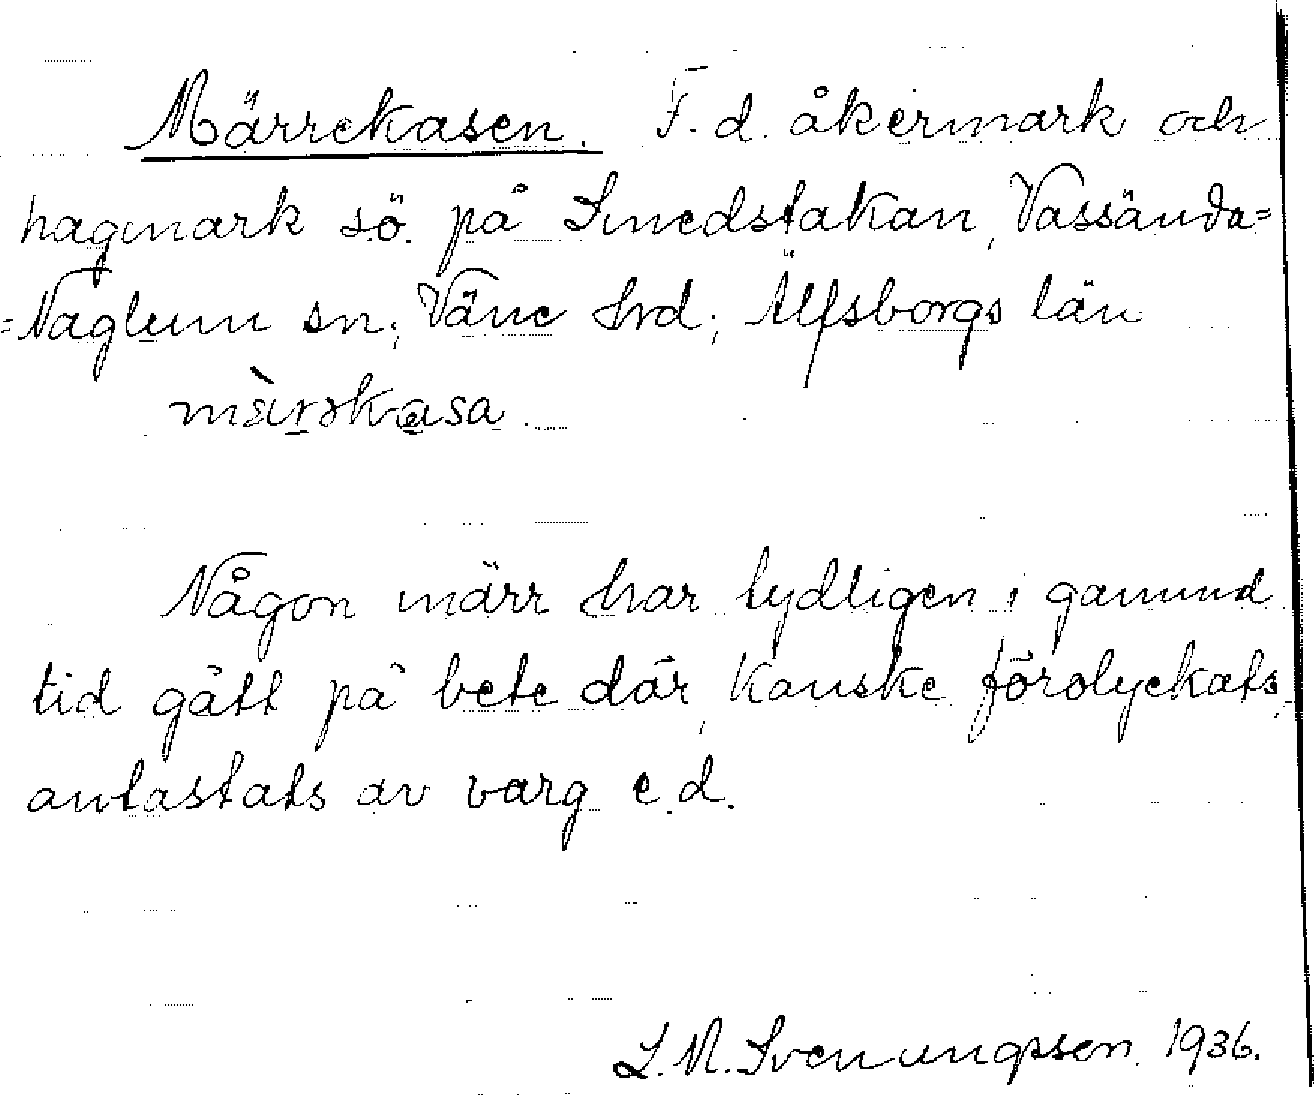 Märrekasen. F. d. åkermark och
hagmark sö. på Smedstakan, Vassända=
=Naglum sn; Väne hrd; Älfsborgs län
Någon märr har tydligen i gammal
tid gått på bete där, kanske förolyckats,
antastats av varg e.d.
L. N. Svenungsson. 1936.